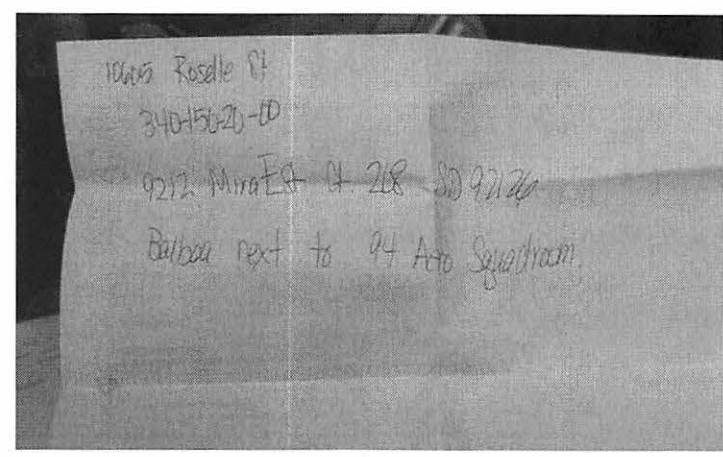 10605 Roselle St
340-150-20-00
9212 Mira Est Ct. 268 SD 92126
Balboa next to 94 Aero Squadroom.